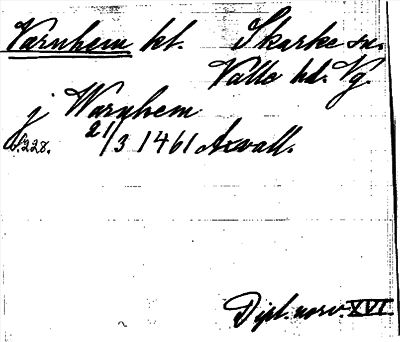 Varnhem kl. Skarke sn.
Valle hd. Vg.
j Warnhem
21/3 1461 Axvall.
s. 228.
Dipl. norv. XVI.